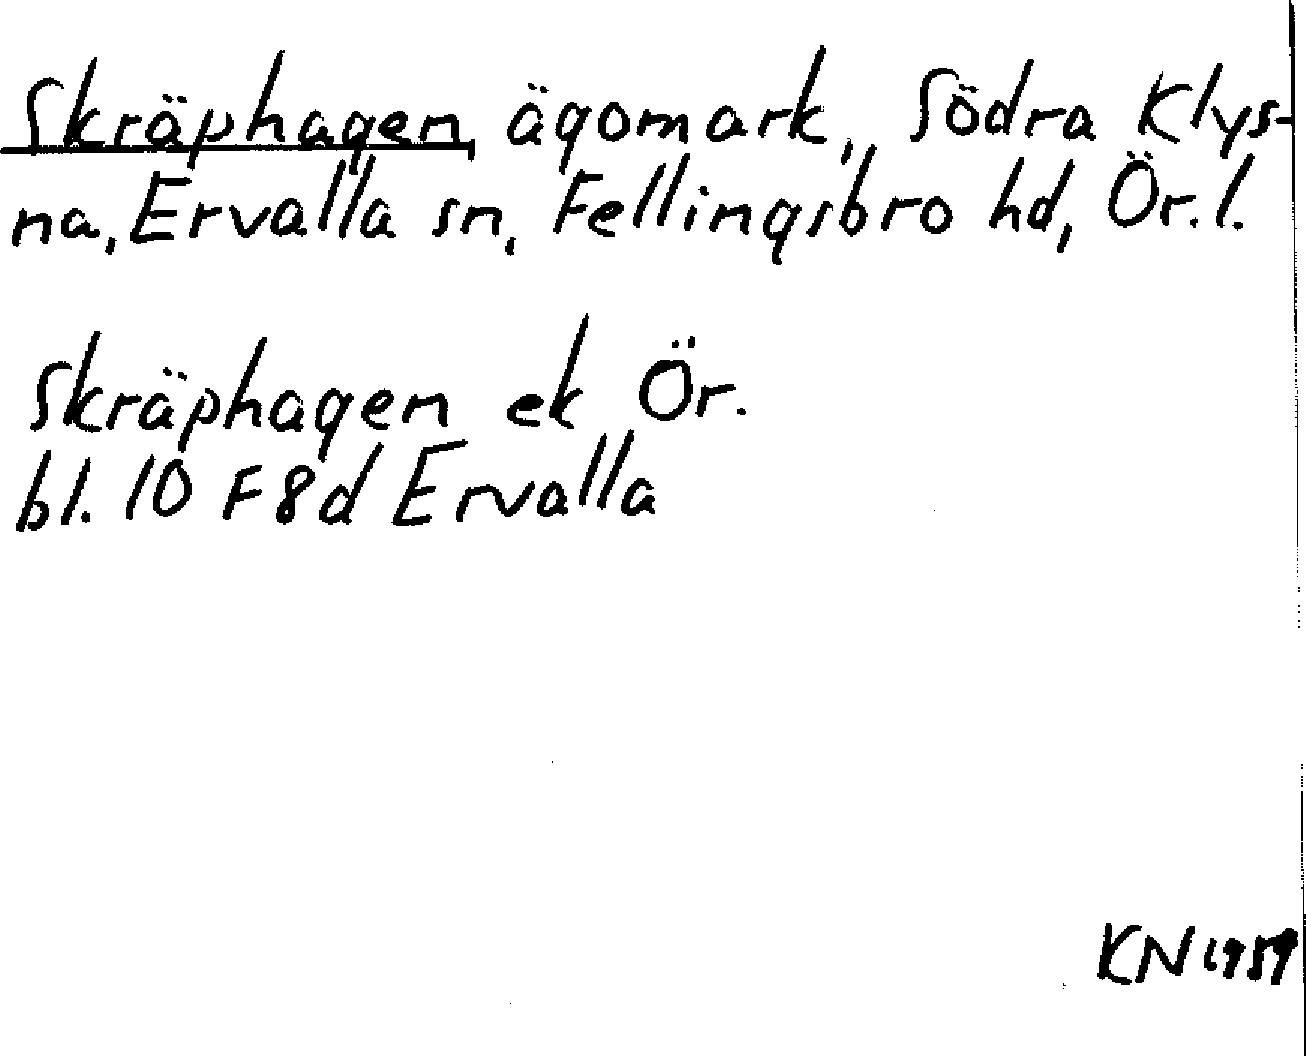 Skräphagen, ägomark, Södra Klys-
na, Ervalla sn, Fellingsbro hd, Ör. l.
Skräphagen ek Ör.
bl. 10 F 8 d Ervalla
KN 1959